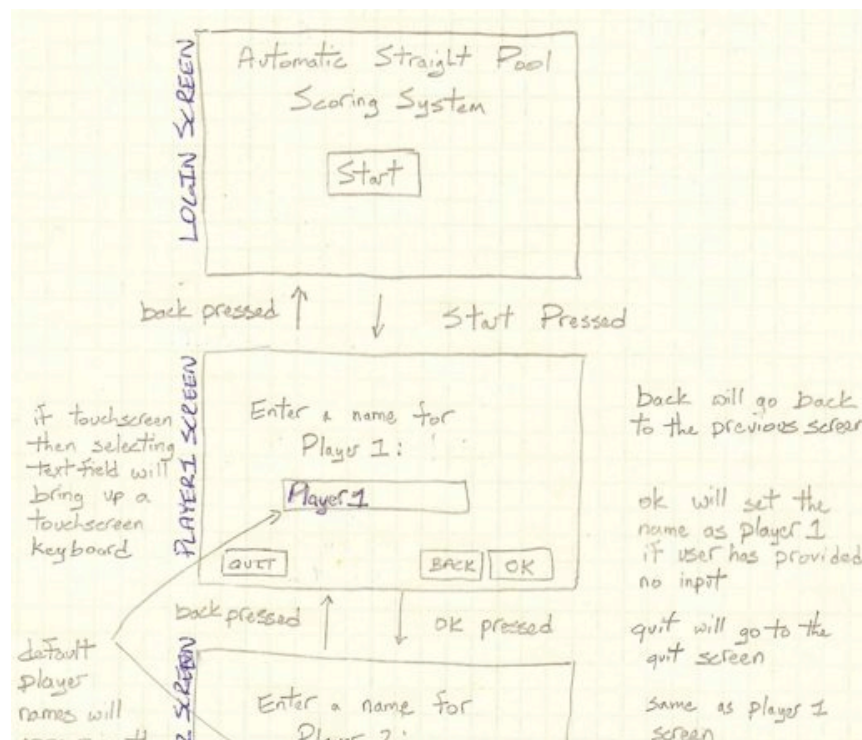 LOGIN SCREEN
Automatic Straight Pool
Scoring System
Start
back pressed
Start Pressed
PLAYER1 SCREEN
Enter a name for
Player 1:
Player 1
QUIT
BACK
OK
if touchscreen
then selecting
text field will
bring up a
touchscreen
keyboard
back will go back
to the previous screen
ok will set the
name as player 1
if user has provided
no input
quit will go to the
quit screen
back pressed
ok pressed
default
player
names will
2 SCREEN
Enter a name for
Player 2:
same as player 1
screen